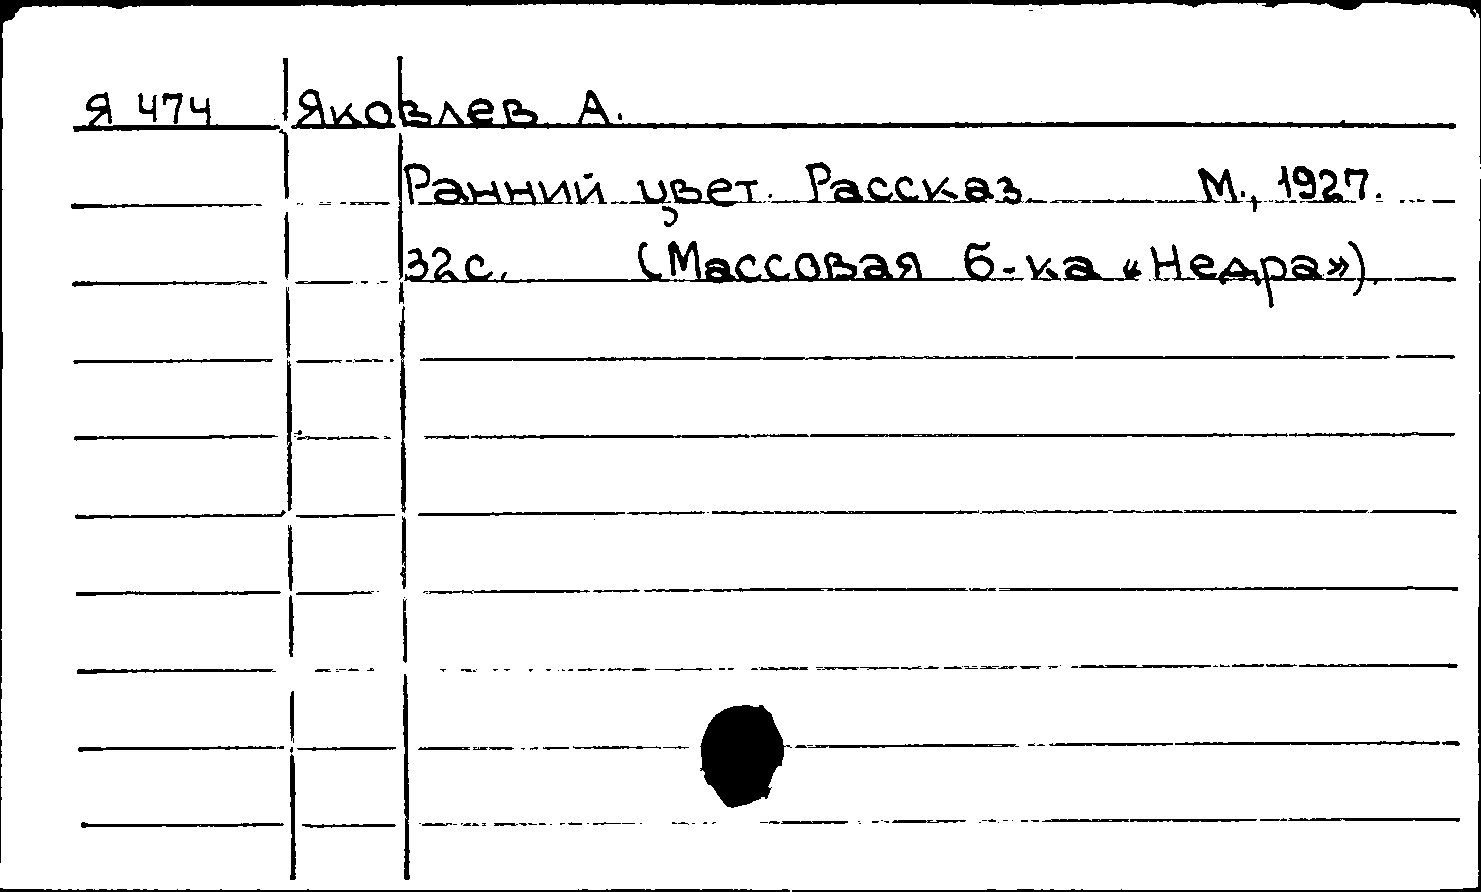 Я 474 Яковлев А.
Ранний цвет. Рассказ. М., 1927.
32с. (Массовая б-ка «Недра»).